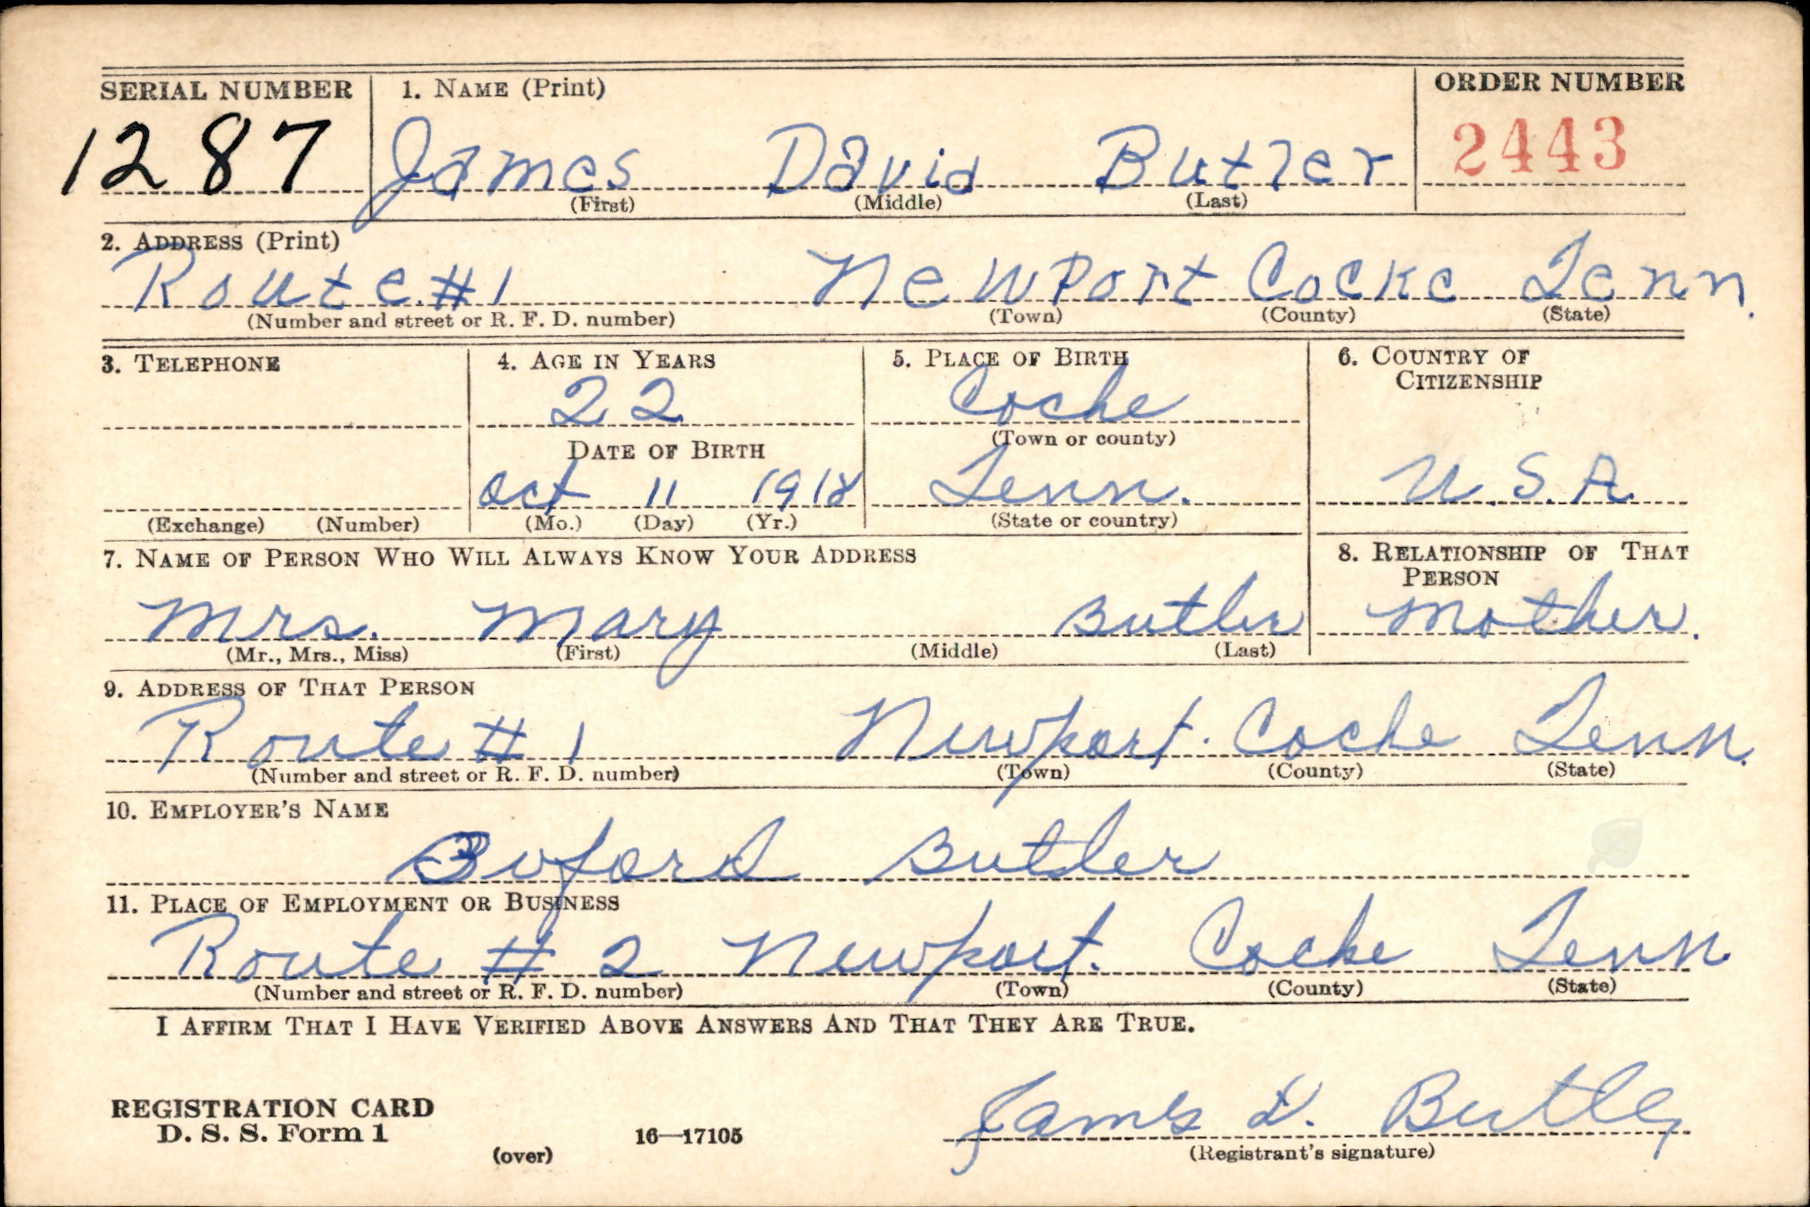 SERIAL NUMBER 1. NAME (Print) ORDER NUMBER
1287 James David Butler 2443
(First) (Middle) (Last)
2. ADDRESS (Print)
Route #1 Newport Cocke Tenn.
(Number and street or R. F. D. number) (Town) (County) (State)
3. TELEPHONE 4. AGE IN YEARS 5. PLACE OF BIRTH 6. COUNTRY OF
CITIZENSHIP
22 Cocke
DATE OF BIRTH (Town or county)
Oct 11 1918 Tenn. U.S.A.
(Exchange) (Number) (Mo.) (Day) (Yr.) (State or country)
7. NAME OF PERSON WHO WILL ALWAYS KNOW YOUR ADDRESS 8. RELATIONSHIP OF THAT
PERSON
Mrs. Mary Butler Mother.
(Mr., Mrs., Miss) (First) (Middle) (Last)
9. ADDRESS OF THAT PERSON
Route #1 Newport. Cocke Tenn.
(Number and street or R. F. D. number) (Town) (County) (State)
10. EMPLOYER'S NAME
Buford Butler
11. PLACE OF EMPLOYMENT OR BUSINESS
Route #2 Newport. Cocke Tenn
(Number and street or R. F. D. number) (Town) (County) (State)
I AFFIRM THAT I HAVE VERIFIED ABOVE ANSWERS AND THAT THEY ARE TRUE.
REGISTRATION CARD James D. Butler
D. S. S. Form 1 (over) 16—17105 (Registrant's signature)